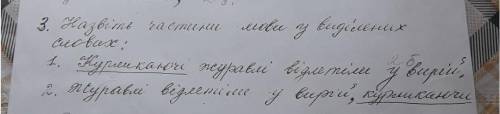 3. Назвіть частини мови у виділених
словах:
1. Курликаючі журавлі відлетіли у вирій.
2. Журавлі відлетіли у вирій, курликаючи